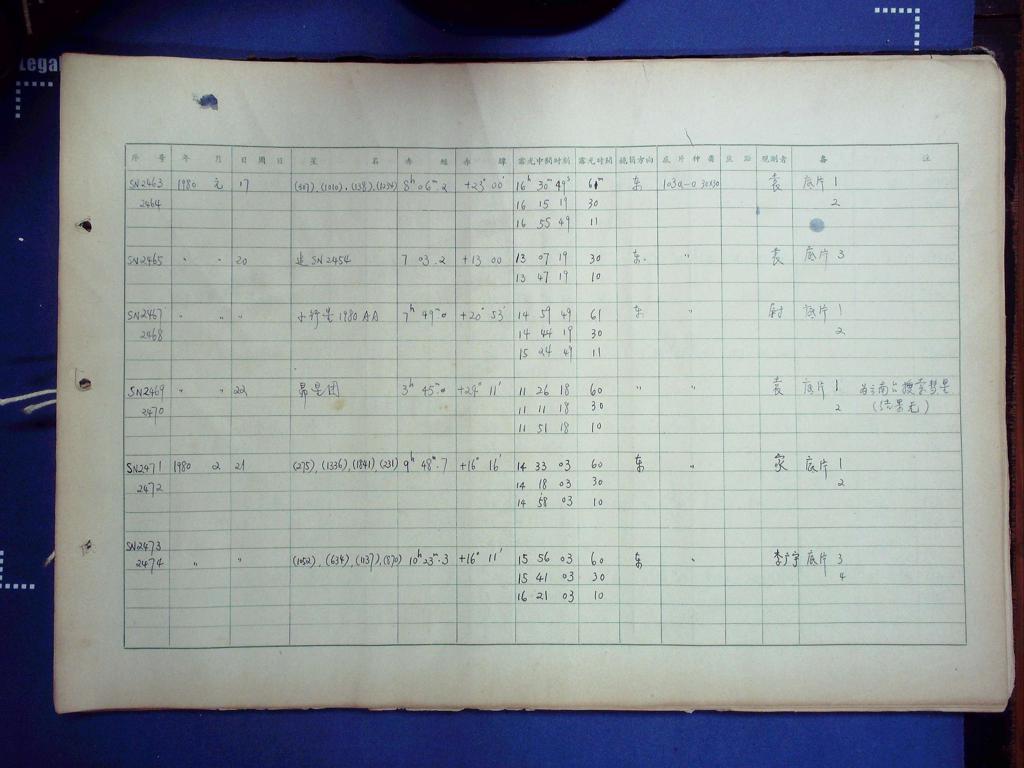 Lega
序号 年 月 日 周日 星 名 赤 经 赤 纬 露光中间时刻 露光时间 镜筒方向 底片种类 焦距 观测者 备 注
SN2463 1980 元 17 (507), (1010), (138), (1234) 8h 06m.2 +23° 00′ 16h 30m 49s 61m 东 103a-O 30X30 袁 底片 1
2464 16 15 19 30 2
16 55 49 11
SN2465 〃 〃 20 SN2454 7 03.2 +13 00 13 07 19 30 东 〃 袁 底片 3
13 47 19 10
SN2467 〃 〃 〃 小行星1980AA 7h 49m.0 +20° 53′ 14 59 49 61 东 〃 底片 1
2468 14 44 19 30 2
15 24 49 11
SN2469 〃 〃 22 昴星团 3h 45m.0 +24° 11′ 11 26 18 60 〃 〃 袁 底片 1 搜索彗星
2470 11 11 18 30 2 (结果无)
11 51 18 10
SN2471 1980 2 21 (275), (1336), (1841), (231) 9h 48m.7 +16° 16′ 14 33 03 60 东 〃 家 底片 1
2472 14 18 03 30 2
14 58 03 10
SN2473
2474 〃 〃 (1052), (634), (1137), (870) 10h 23m.3 +16° 11′ 15 56 03 60 东 〃 李广宇 底片 3
15 41 03 30 4
16 21 03 10